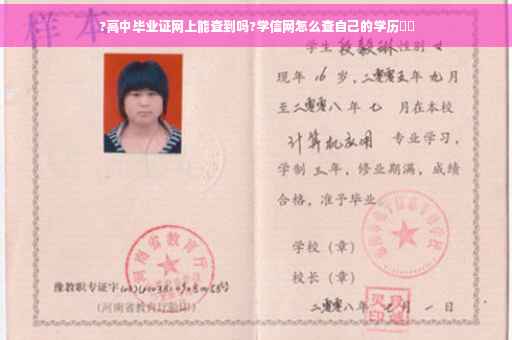 ?高中毕业证网上能查到吗?学信网怎么查自己的学历
样本
学生 段毅琳 性别 女
现年 16 岁，二零零五年 九月
至二零零八年 七 月在本校
计算机应用 专业学习，
学制 三年，修业期满，成绩
合格，准予毕业
学校（章）
校长（章）
二零零八年 七月 一日
河南省教育厅
豫教职专证字
（河南省教育厅验印）